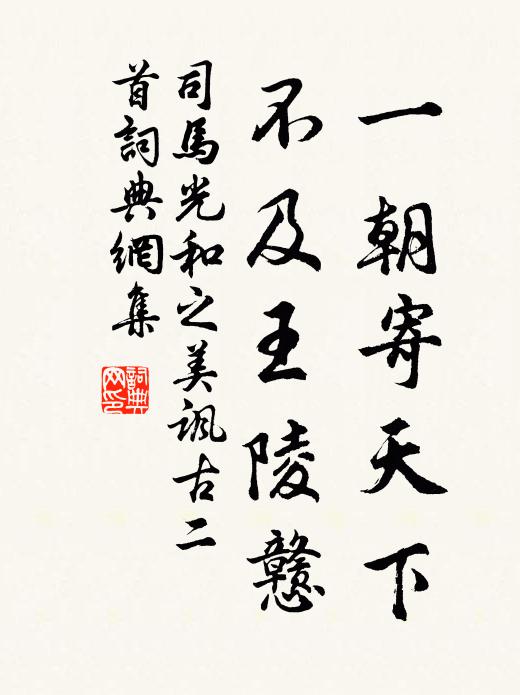 一朝寄天下
不及王陵戇
司馬光和之美諷古二
首詞典網集
詞典网印